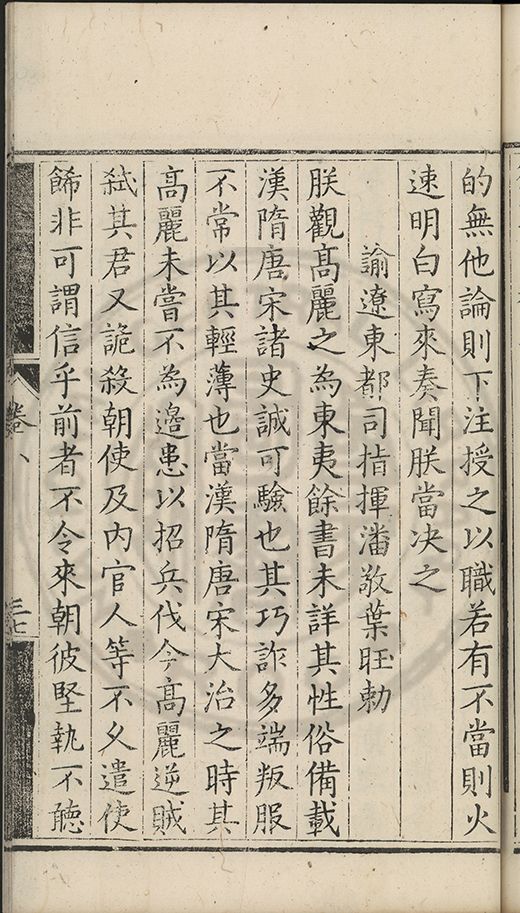 的無他論則下注授之以職若有不當則火
速明白寫來奏聞朕當决之
諭遼東都司指揮潘敬葉旺勅
朕觀高麗之為東夷餘書未詳其性俗備載
漢隋唐宋諸史誠可驗也其巧詐多端叛服
不常以其輕薄也當漢隋唐宋大治之時其
高麗未嘗不為邊患以招兵伐今高麗逆賊
弑其君又詭殺朝使及内官人等不久遣使
餙非可謂信乎前者不令來朝彼堅執不聽
卷八
三七